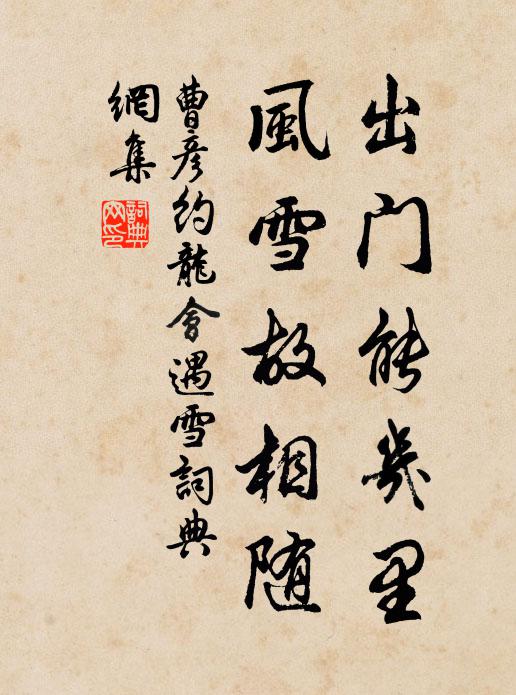 出门能幾里
風雪故相随
曹彦约龍會遇雪詞典
網集
詞典
网印